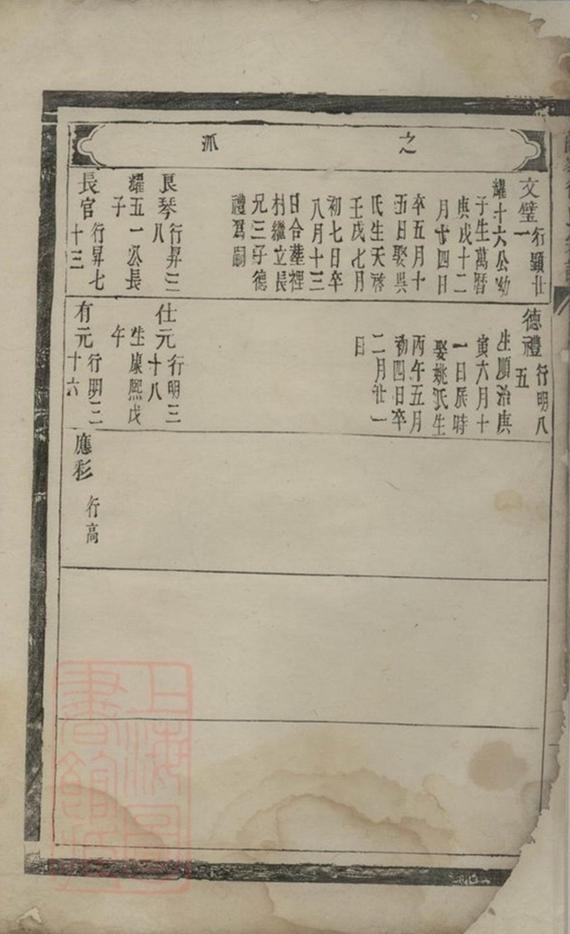 之派
文璧行顯廿一
耀十六公幼
子生萬曆
庚戌十二
月廿四日
卒五月十
五日娶吳
氏生天啓
壬戌七月
初七日卒
八月十三
日合塟裡
村繼立長
兄三子德
禮爲嗣
良琴行昇三八
耀五一公長
子
長官行昇七十三
德禮行明八五
生順治庚
寅六月十
一日辰時
娶姚氏生
丙午五月
初四日卒
二月廿一
日
仕元行明三十八
生康熙戊
午
有元行明三十六
應彩行高
上海圖書館藏